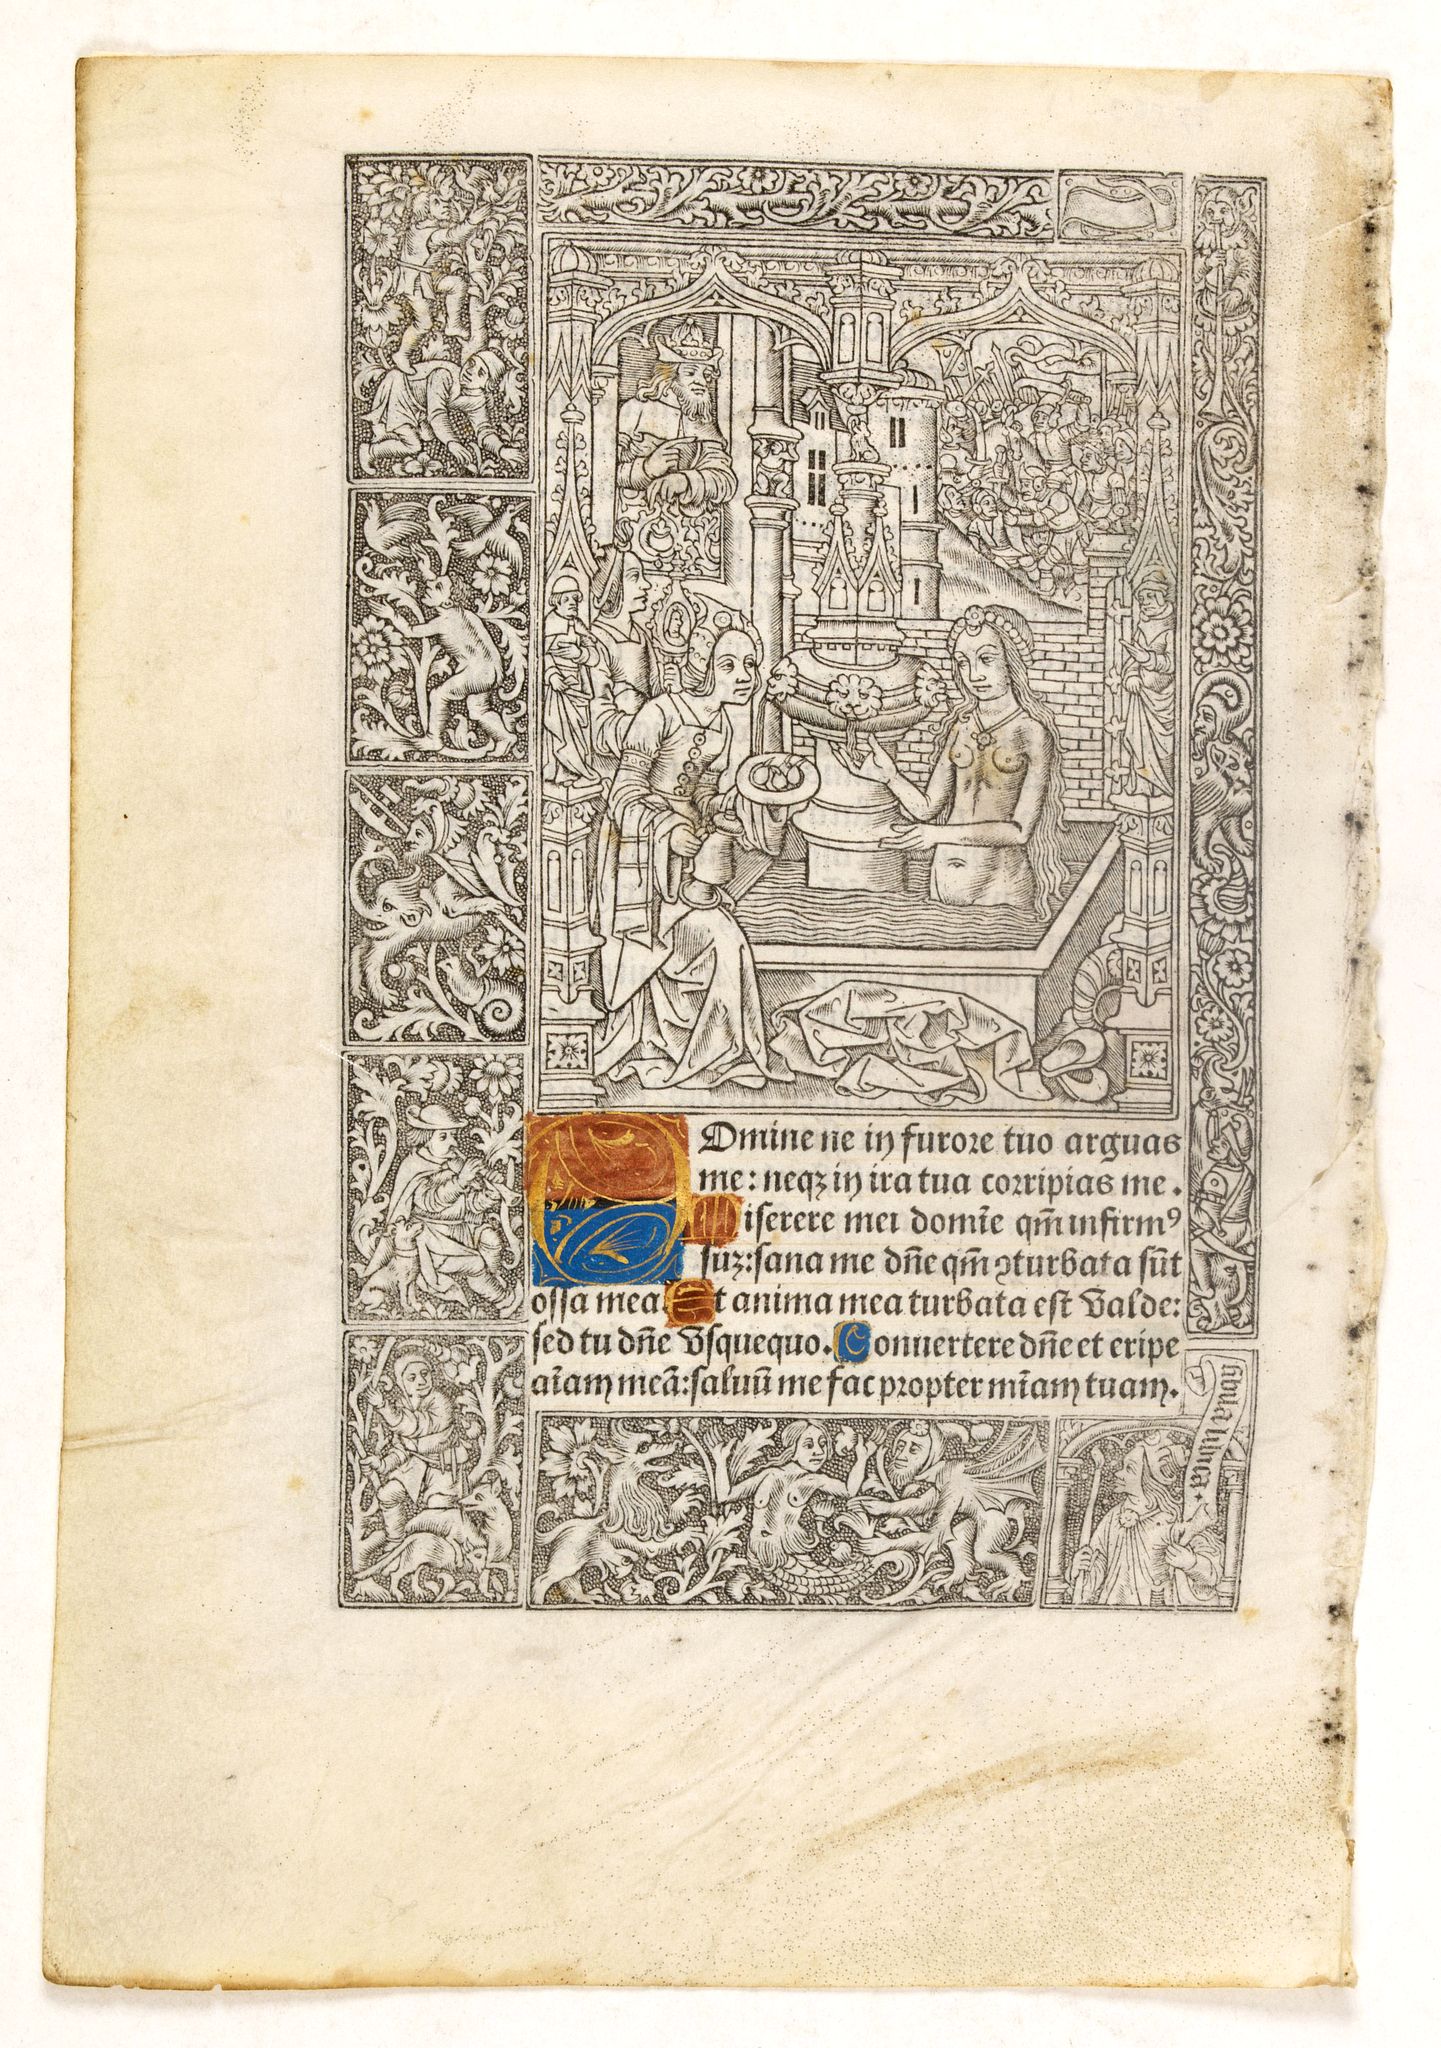 Domine ne in furore tuo arguas
me: neqꝫ in ira tua corripias me.
Miserere mei domīe qm̄ infirmꝰ
suꝫ: sana me dn̄e qm̄ ꝯturbata sūt
ossa mea. Et anima mea turbata est valde:
sed tu dn̄e vsquequo. Conuertere dn̄e et eripe
aīam meā: saluū me fac propter mīam tuam.
sibila libica.